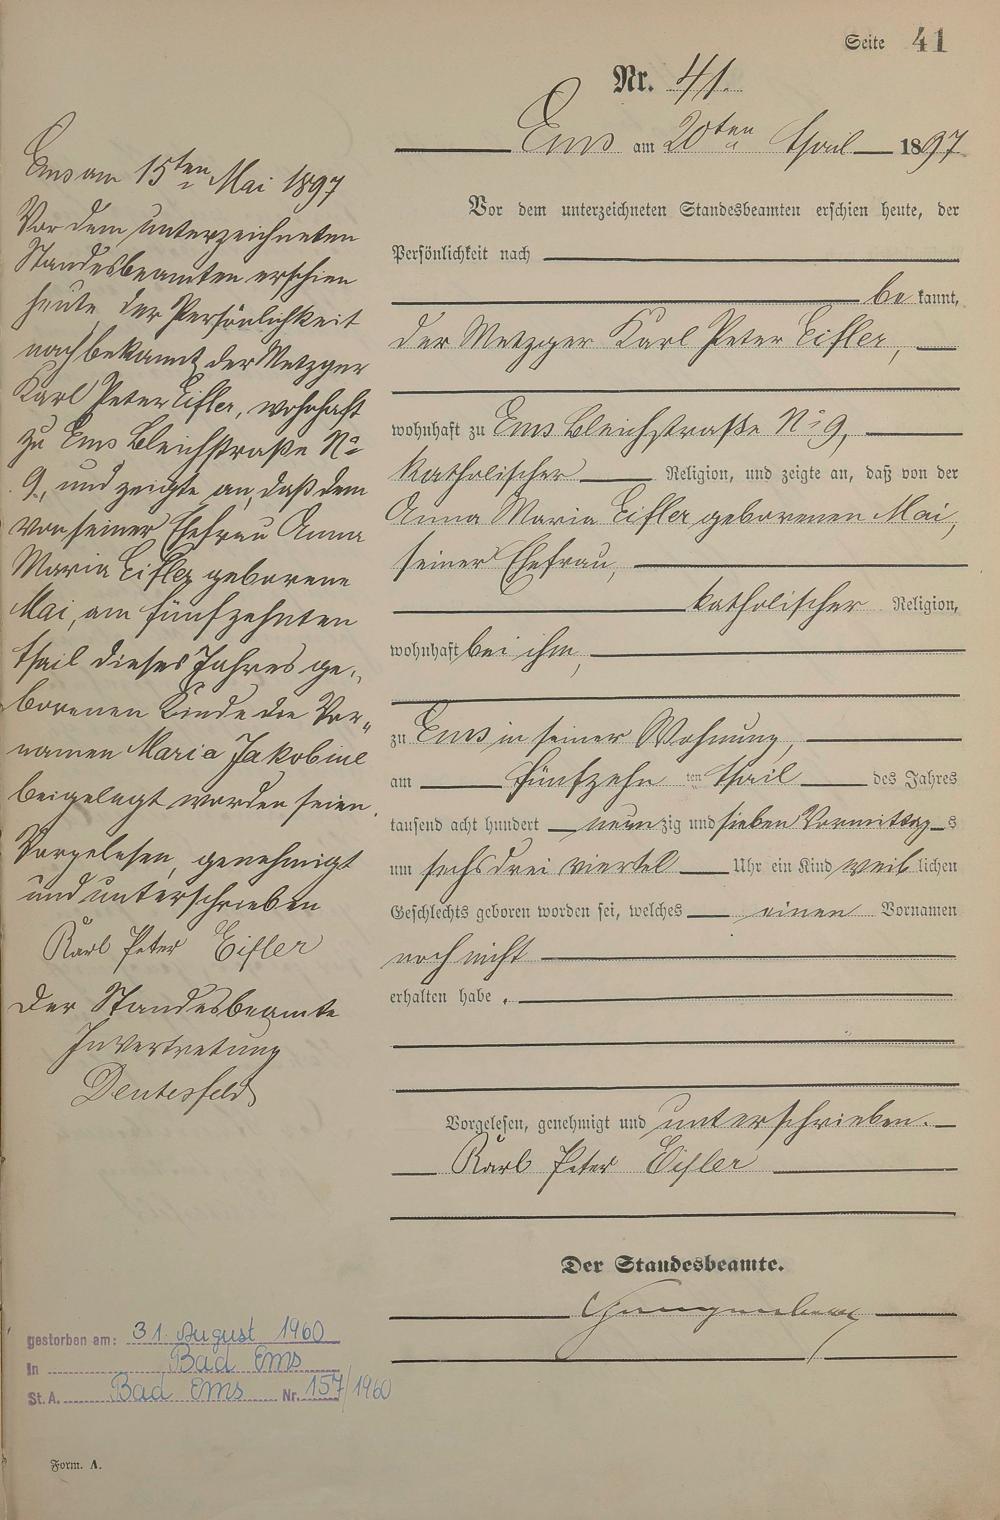 Seite 41
Nr. 41.
Ems am 20ten April 1897
Vor dem unterzeichneten Standesbeamten erschien heute, der
Persönlichkeit nach
be kannt,
der Metzger Karl Peter Eifler,
wohnhaft zu Ems Bleichstraße No 9,
katholischer Religion, und zeigte an, daß von der
Anna Maria Eifler geborenen Mai,
seiner Ehefrau,
katholischer Religion,
wohnhaft bei ihm,
zu Ems in seiner Wohnung,
am fünfzehn ten April des Jahres
tausend acht hundert neunzig und sieben Vormittags
um sechs drei viertel Uhr ein Kind weiblichen
Geschlechts geboren worden sei, welches einen Vornamen
noch nicht
erhalten habe.
Vorgelesen, genehmigt und unterschrieben.
Karl Peter Eifler
Der Standesbeamte.
Ems am 15ten Mai 1897
Vor dem unterzeichneten
Standesbeamten erschien
heute der Persönlichkeit
nach bekannt, der Metzger
Karl Peter Eifler, wohnhaft
zu Ems Bleichstraße No
9, und zeigte an, daß dem
von seiner Ehefrau Anna
Maria Eifler geborene
Mai, am fünfzehnten
April dieses Jahres ge-
borenen Kinde die Vor-
namen Maria Jakobine
beigelegt worden seien.
Vorgelesen, genehmigt
und unterschrieben
Karl Peter Eifler
Der Standesbeamte
In Vertretung
gestorben am: 31. August 1960
In Bad Ems
St. A. Bad Ems Nr. 157/1960
Form. A.